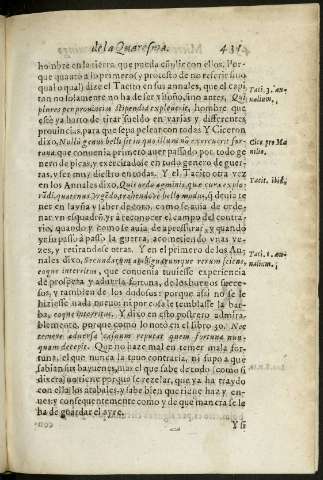 de la Quaresma. 431.
hombre en la tierra, que pueda cõpetir con ellos. Por-
que quanto a lo primero (y protesto de no referir sino
qual o qual) dize el Tacito en sus annales, que el capi
tan no solamente no ha de ser visoño, sino antes, Qui
plures per prouincias stipendia expleuerit, hombre que
estè ya harto de tirar sueldo en varias y differentes
prouincias, para que sepa pelear con todas Y Ciceron
dixo, Nullū genus belli sit in quo illum nō exercuerit for-
tuna, que conuenia primero auer passado por todo ge
nero de picas, y exercitadose en todo genero de guer-
ras, y ser muy diestro en todas. Y el Tacito otra vez
en los Annales dixo,
ner en la vña y saber de coro, como se auia de orde-
nar vn esquadrõ, yr a reconocer el campo del contra-
rio, quando y como se auia de apressurar, y quando
yr su passo a passo la guerra, acometiendo vnas vezes
y retirandose otras. Y en el primero de los An-
nales dixo, Secundarum ambiguarumque rerum sciens,
eoque interritus, que conuenia tuuiesse experiencia
de prospera y aduersa fortuna, de los buenos sucessos
y tambien de los dudosos: porque assi no se le
hiziesse nada nueuo, ni por cosa le temblasse la bar-
ba, eoque interritus. Y dixo en esto postrero admira-
blemente, porque como lo notò en el libro 30. Nec
temere aduersa casuum reputat quem fortuna nun-
quam decepit. Que no haze mal en temer mala for-
tuna, el que nunca la tuuo contraria, ni supo a que
sabian sus bayuenes, mas el que sabe de todo (como si
dixera) no tiene porque se rezelar, que ya ha traydo
con ella los atabales, y sabe bien que tiene haz y en-
ues: y consequentemente como y de que manera se le
ha de guardar el ayre.
Y si
Taci. 3. an-
nalium,
Cice pro Ma
nilia.
Tacit. ibid.
Taci. 1. an-
nalium.